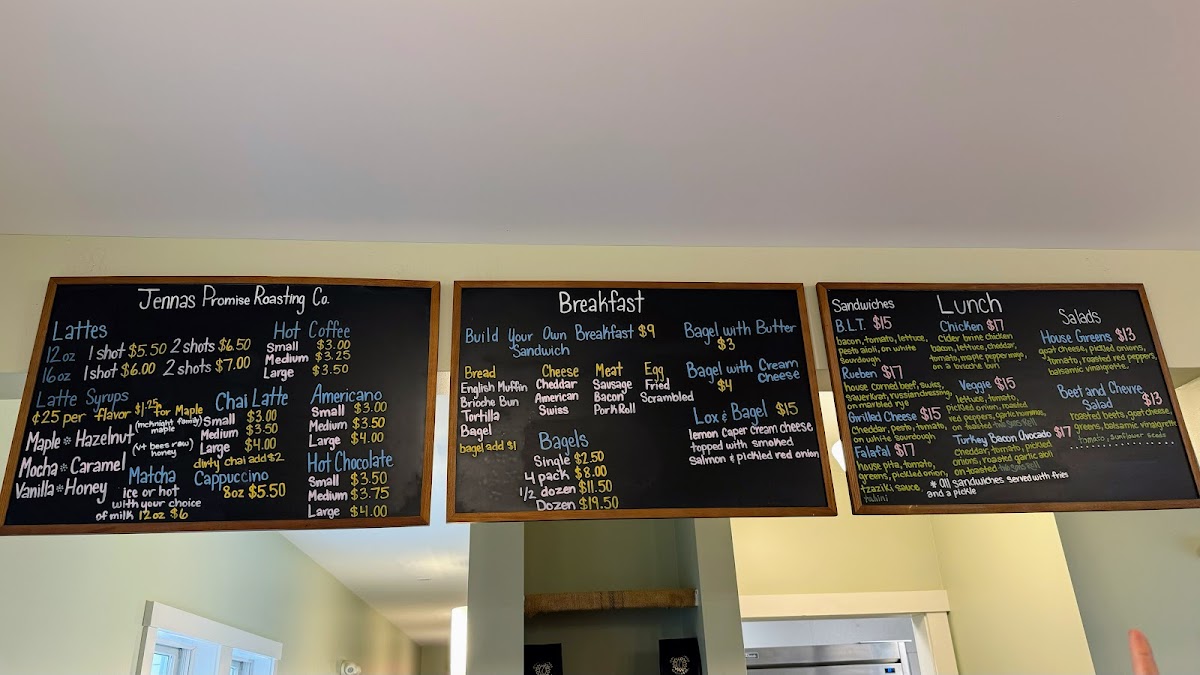 Jennas Promise Roasting Co.
Lattes
12oz 1 shot $5.50 2 shots $6.50
16oz 1 shot $6.00 2 shots $7.00
Latte Syrups
¢25 per flavor $1.25 for Maple
(mcknight family maple)
Maple * Hazelnut
(4t bees raw honey)
Mocha * Caramel
Vanilla * Honey
Hot Coffee
Small $3.00
Medium $3.25
Large $3.50
Chai Latte
Small $3.00
Medium $3.50
Large $4.00
dirty chai add $2
Americano
Small $3.00
Medium $3.50
Large $4.00
Matcha
ice or hot
with your choice
of milk 12oz $6
Cappuccino
8oz $5.50
Hot Chocolate
Small $3.50
Medium $3.75
Large $4.00
Breakfast
Build Your Own Breakfast $9
Sandwich
Bread
English Muffin
Brioche Bun
Tortilla
Bagel
bagel add $1
Cheese
Cheddar
American
Swiss
Meat
Sausage
Bacon
Pork Roll
Egg
Fried
Scrambled
Bagels
Single $2.50
4 pack $8.00
1/2 dozen $11.50
Dozen $19.50
Bagel with Butter
$3
Bagel with Cream
Cheese
$4
Lox & Bagel $15
lemon caper cream cheese
topped with smoked
salmon & pickled red onion
Lunch
Sandwiches
B.L.T. $15
bacon, tomato, lettuce,
pesto aioli, on white
sourdough
Rueben $17
house corned beef, swiss,
sauerkraut, russian dressing,
on marbled rye
Grilled Cheese $15
cheddar, pesto, tomato,
on white sourdough
Falafal $17
house pita, tomato,
greens, pickled onion,
tzaziki sauce,
tahini
Chicken $17
cider brine chicken
bacon, lettuce, cheddar,
tomato, maple pepper mayo,
on a brioche bun
Veggie $15
lettuce, tomato,
pickled onion, roasted
red peppers, garlic hummus,
on toasted
Turkey Bacon Avocado $17
cheddar, tomato, pickled
onions, roasted garlic aioli
on toasted
* All sandwiches served with fries
and a pickle
Salads
House Greens $13
goat cheese, pickled onions,
tomato, roasted red peppers,
balsamic vinaigrette
Beet and Chevre
Salad $13
roasted beets, goat cheese,
greens, balsamic vinaigrette
tomato, sunflower seeds